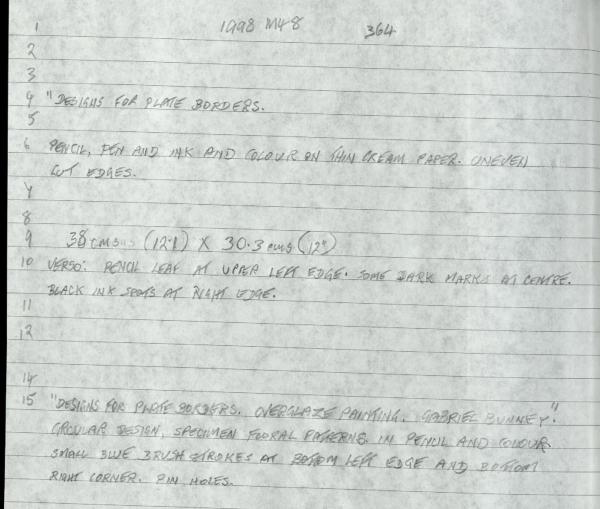 1 1998 M48 364
2
3
4 "DESIGNS FOR PLATE BORDERS.
5
6 PENCIL, PEN AND INK AND COLOUR ON THIN CREAM PAPER. UNEVEN
CUT EDGES.
7
8
9 38 cms (12"1) X 30.3 cms (12")
10 VERSO: PENCIL LEAF AT UPPER LEFT EDGE. SOME DARK MARKS AT CENTRE.
BLACK INK SPOTS AT RIGHT EDGE.
11
12
14
15 "DESIGNS FOR PLATE BORDERS. OVERGLAZE PAINTING. GABRIEL BUNNEY".
CIRCULAR DESIGN, SPECIMEN FLORAL PATTERNS IN PENCIL AND COLOUR.
SMALL BLUE BRUSH STROKES AT BOTTOM LEFT EDGE AND BOTTOM
RIGHT CORNER. PIN HOLES.